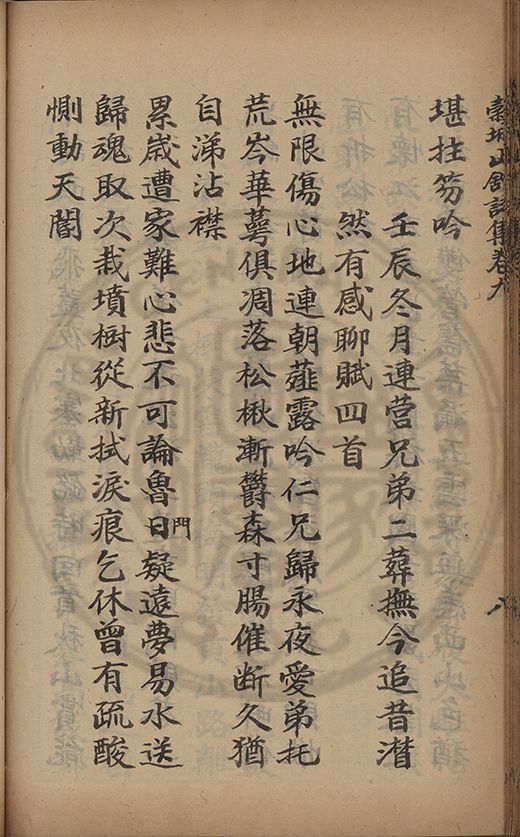 堪拄笏吟
壬辰冬月連营兄弟二葬撫今追昔潸
然有感聊賦四首
無限傷心地連朝薤露吟仁兄歸永夜愛弟托
荒岑華萼俱凋落松楸漸欝森寸腸催断久猶
自涕沾襟
累歲遭家難心悲不可論魯日門疑遠夢易水送
歸魂取次栽墳樹從新拭淚痕乞休曾有疏酸
惻動天閽